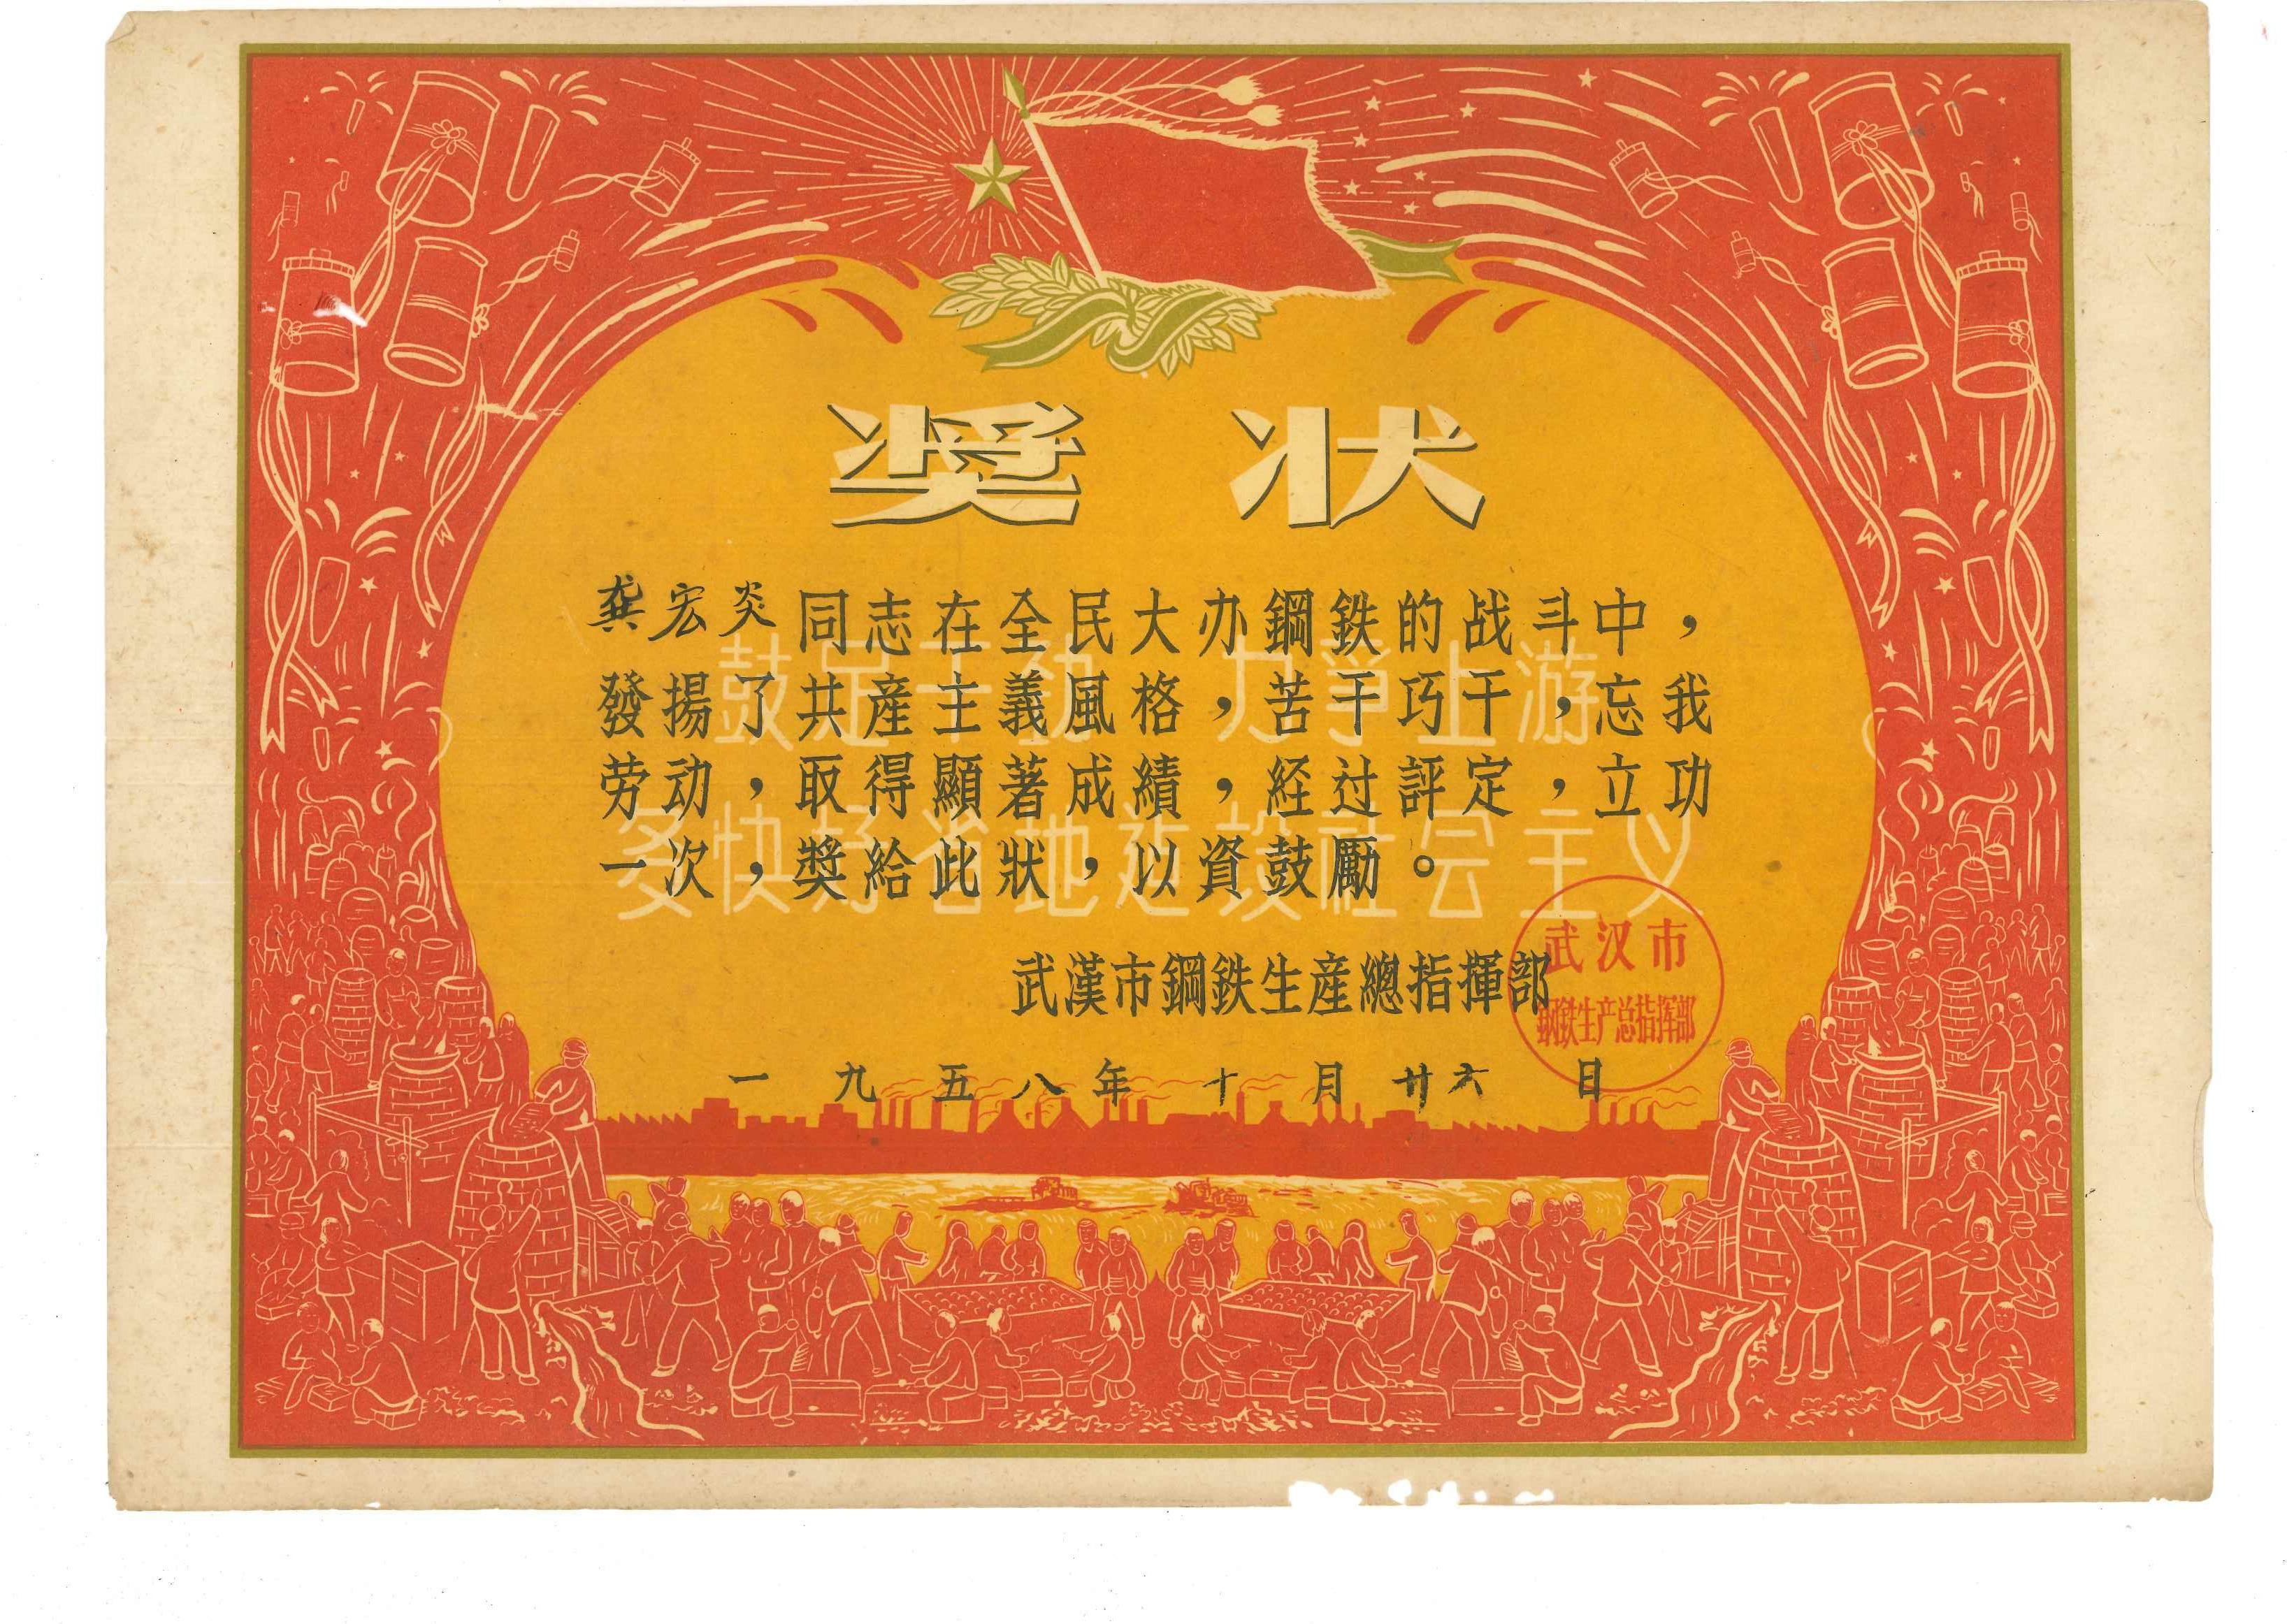 奬 状
龚宏炎同志在全民大办鋼鉄的战斗中，
發揚了共産主義風格，苦干巧干，忘我
劳动，取得顯著成績，経过評定，立功
一次，奬給此狀，以資鼓勵。
鼓足干劲 力爭上游
多快好省地建設社会主义
武漢市鋼鉄生産總指揮部
武汉市
钢鉄生产总指挥部
一九五八年十月廿六日